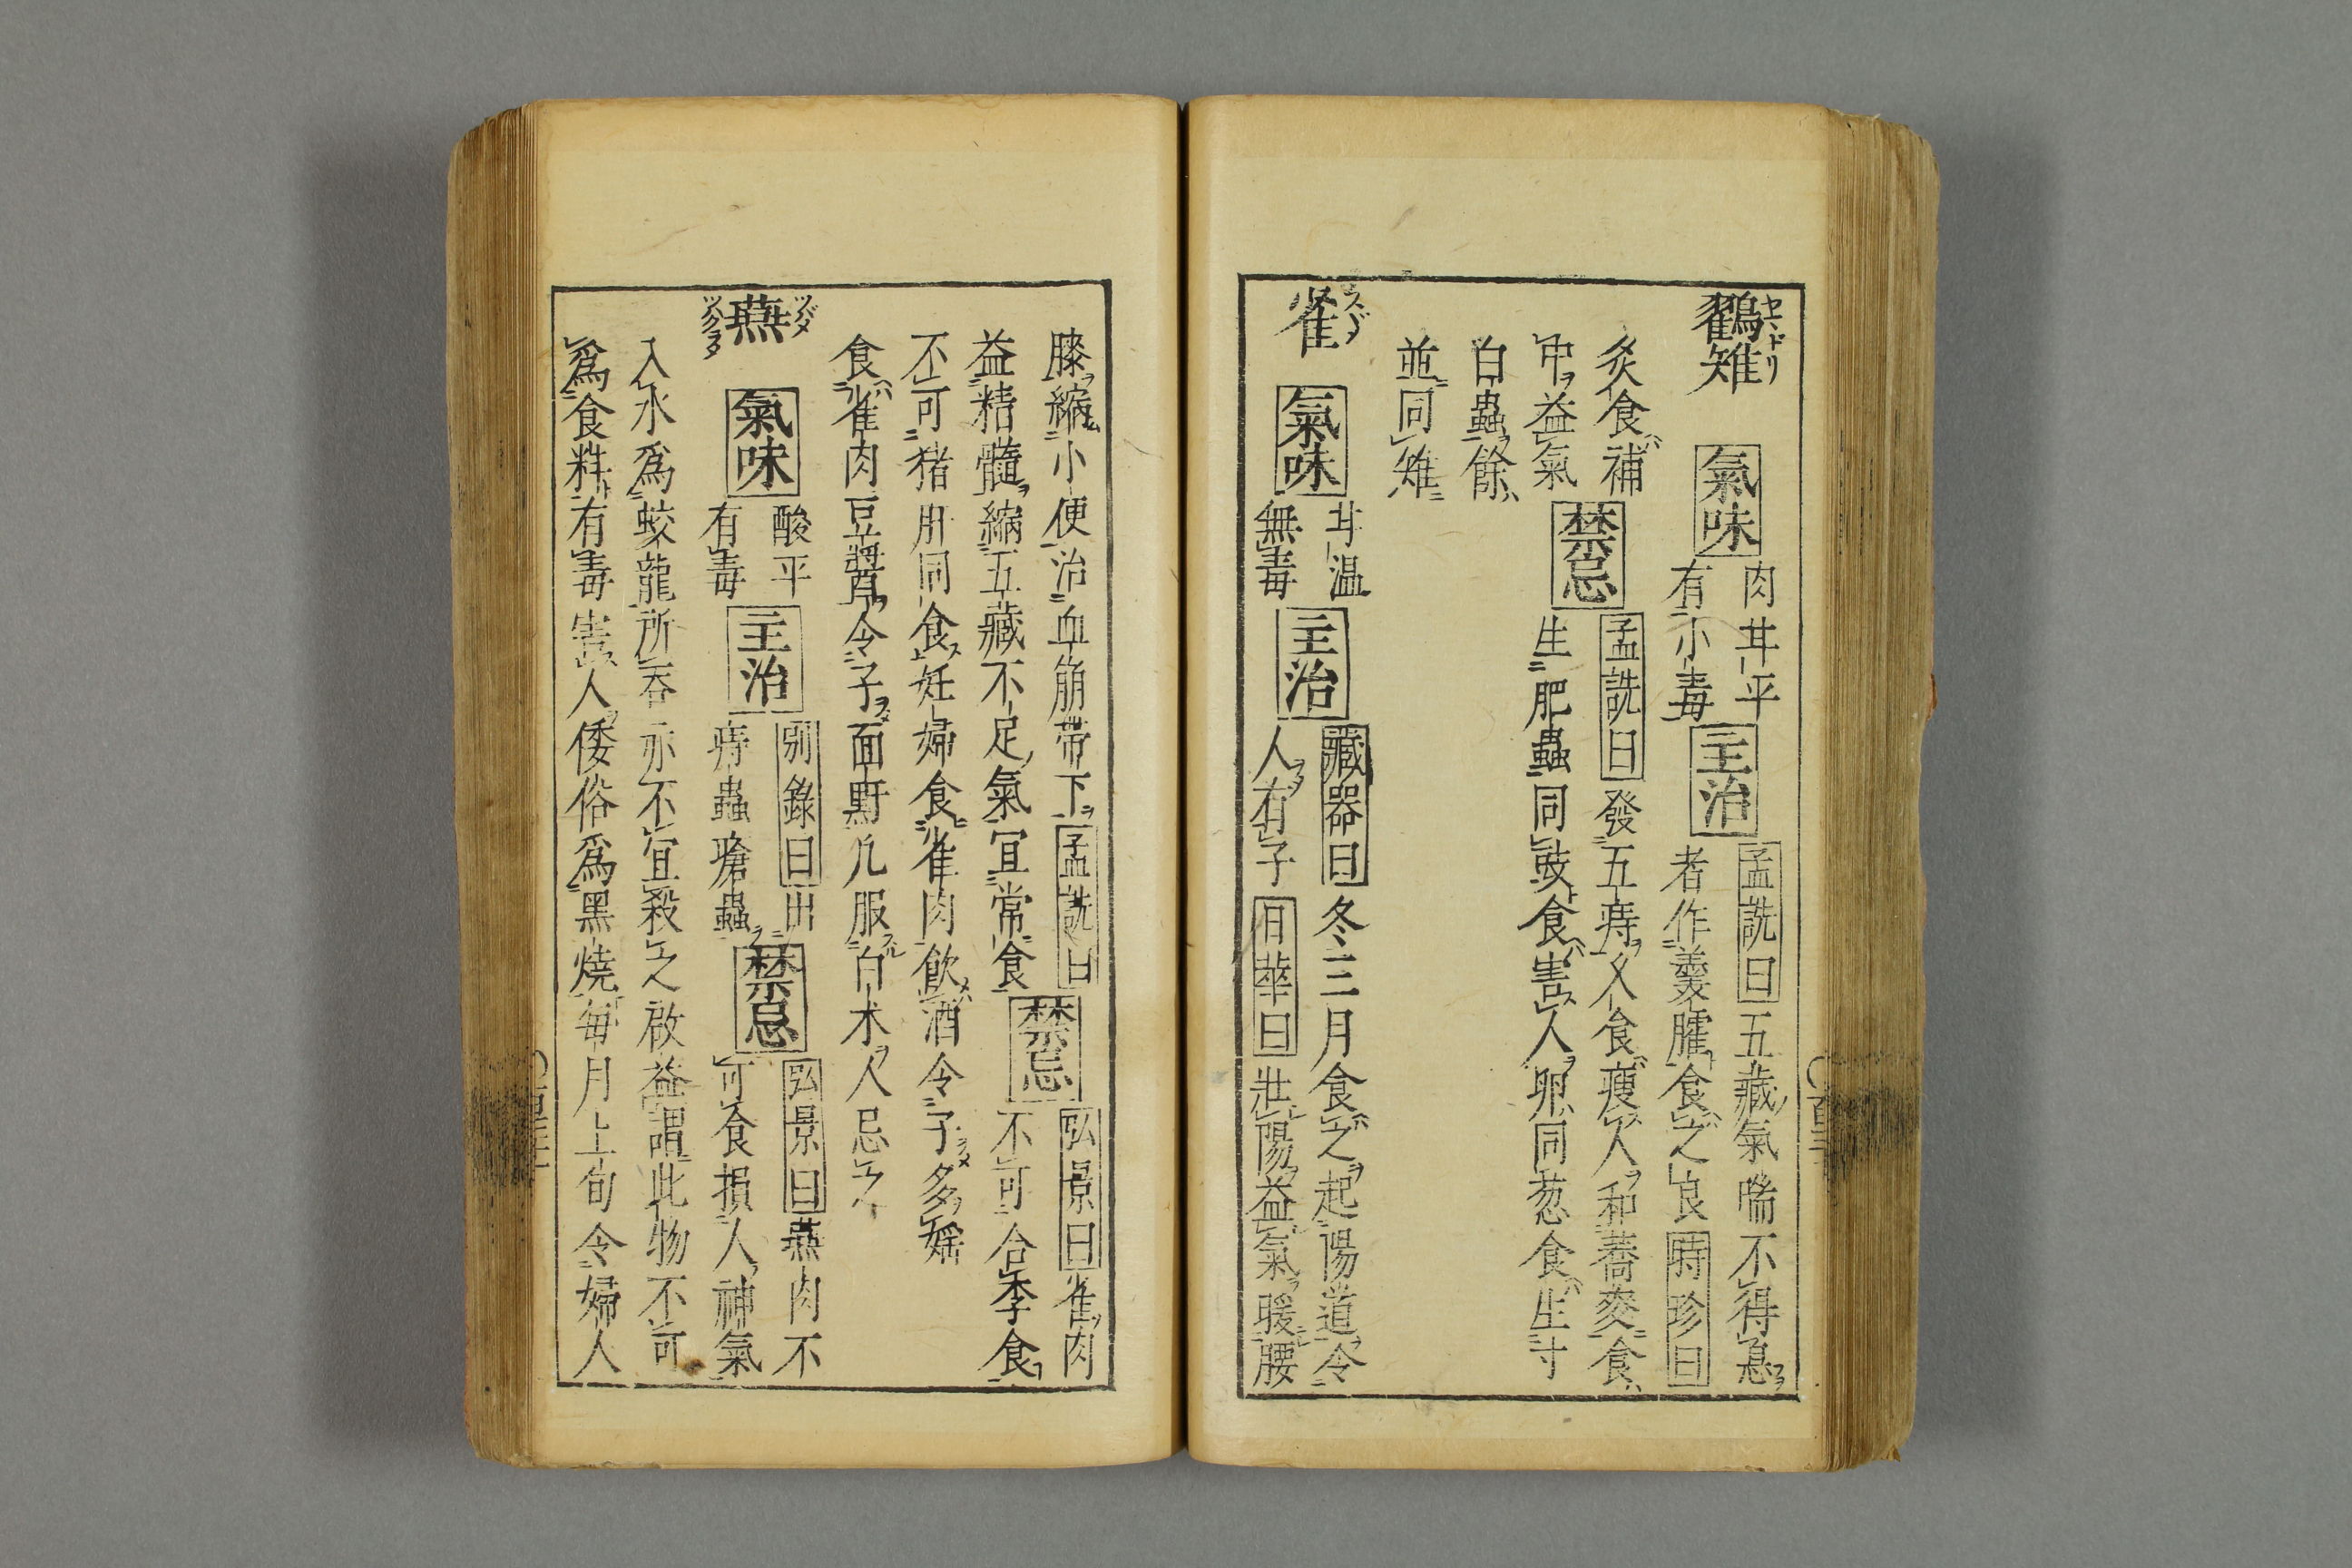 鸐雉 氣味 肉甘平 主治 孟詵曰五藏氣喘不得息
有小毒 者作羹臛食之良 時珍曰
炙食補 禁忌 孟詵曰發五痔久食瘦人和蕎麥食
中益氣 生肥蟲同豉食害人卵同葱食生寸
白蟲餘
並同雉
雀 氣味 甘温 主治 藏器曰冬三月食之起陽道令
無毒 人有子 日華曰壯陽益氣暖腰
膝縮小便治血崩帶下 孟詵曰 禁忌 弘景曰雀肉
益精髓縮五藏不足氣宜常食 不可合李食
不可猪肝同食妊婦食雀肉飲酒令子多婬
食雀肉豆醬令子面䵟凢服白术人忌之
燕 氣味 酸平 主治 别錄曰出 禁忌 弘景曰燕肉不
有毒 痔蟲瘡蟲 可食損人神氣
入水爲蛟龍所呑亦不宜殺之啟益謂此物不可
爲食料有毒害人倭俗爲黑燒每月上旬令婦人